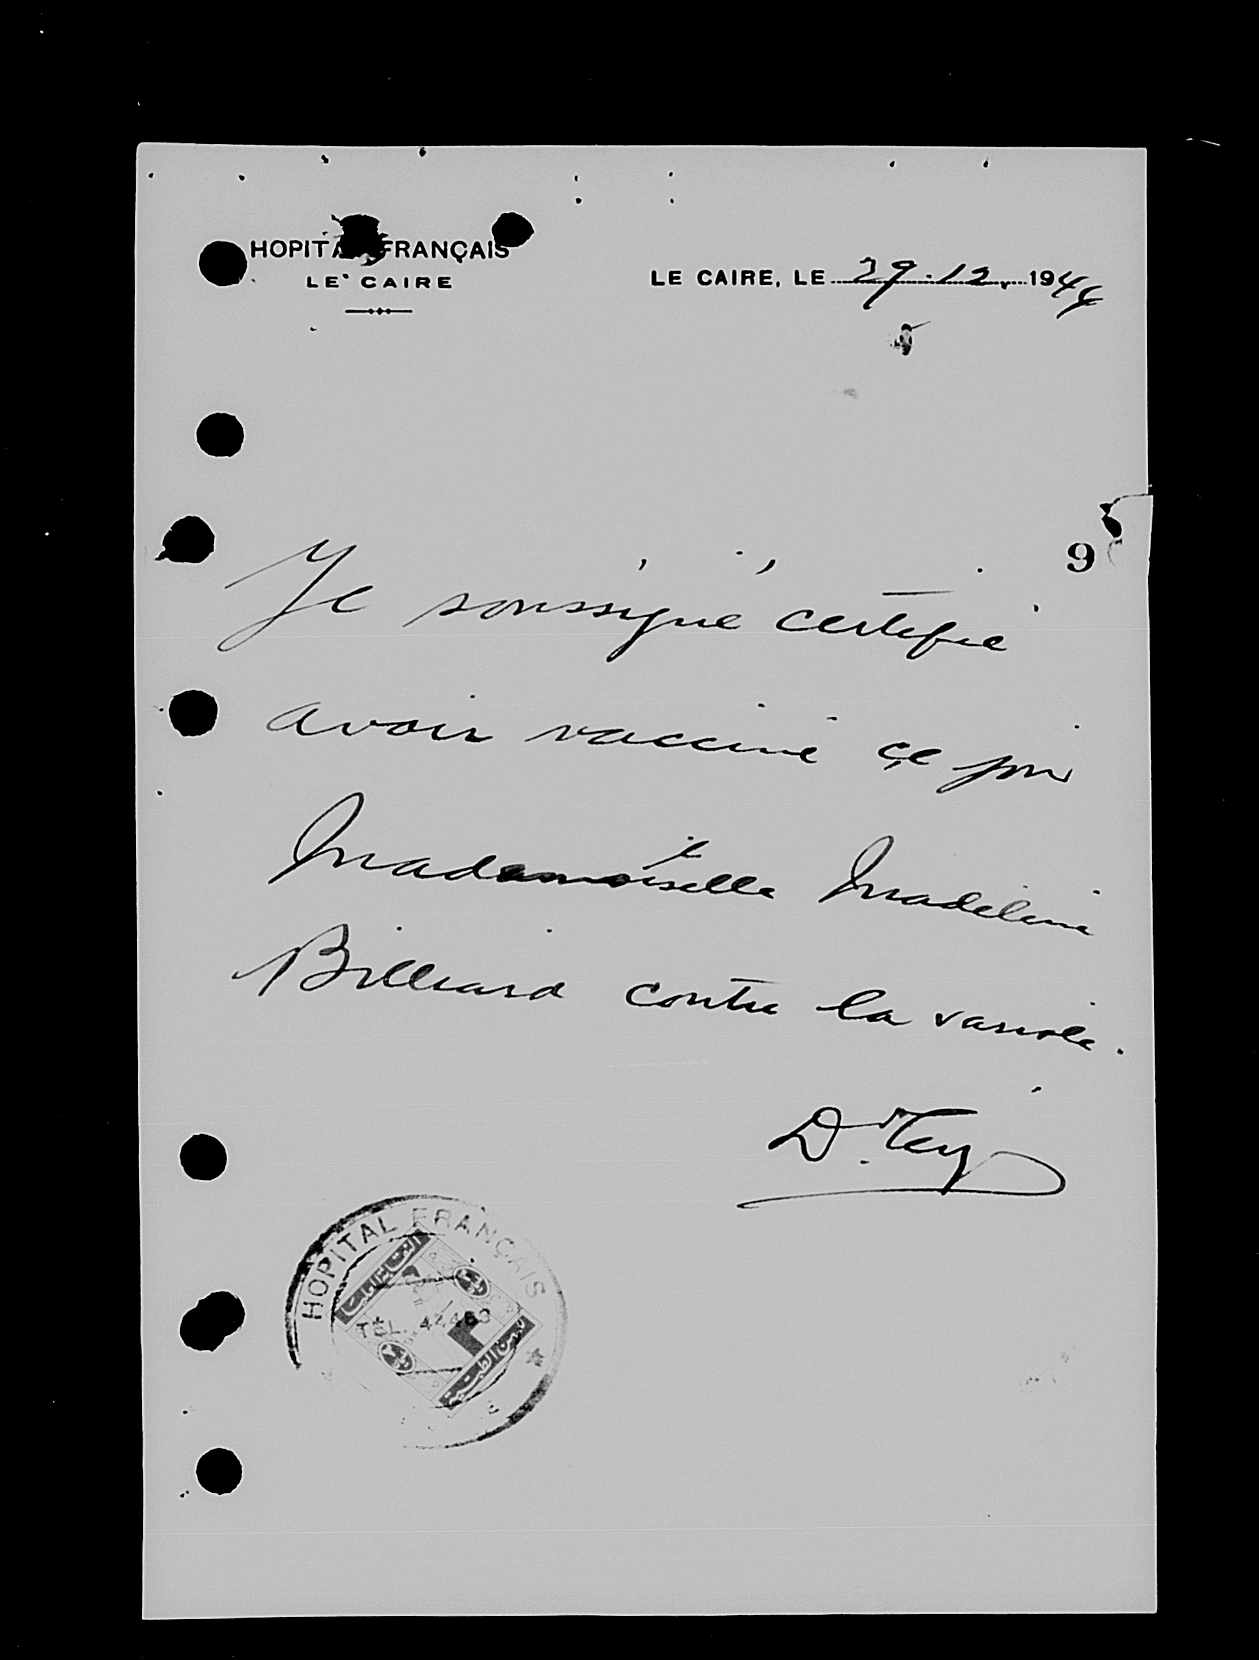 HOPITAL FRANÇAIS
LE CAIRE
LE CAIRE, LE 29.12. 1944
9
Je soussigné certifie
avoir vacciné ce jour
Mademoiselle Madeleine
Billiard contre la variole.
Dr
HOPITAL FRANÇAIS
TÉL. 44463